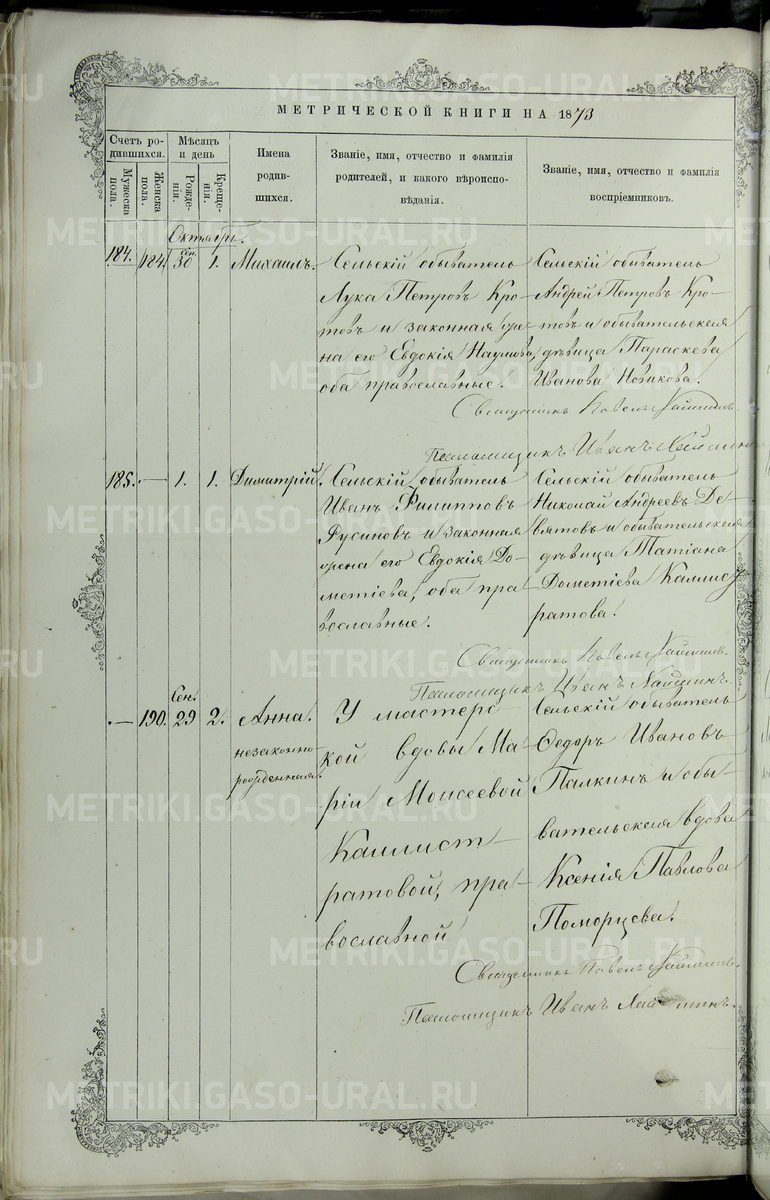 МЕТРИЧЕСКОЙ КНИГИ НА 1873
Счетъ родившихся.
Мужеска пола.
Женска пола.
Мѣсяцъ и день
Рожденія.
Крещенія.
Имена родившихся.
Званіе, имя, отчество и фамилія родителей, и какого вѣроисповѣданія.
Званіе, имя, отчество и фамилія воспріемниковъ.
Октябрь.
184.
184.
сен.
30
1.
Михаилъ.
Сельскій обыватель
Лука Петровъ Кро-
товъ и законная же-
на его Евдокія Наумова,
оба православные.
Сельскій обыватель
Андрей Петровъ Кро-
товъ и обывательская
дѣвица Параскева
Иванова Новикова.
Священникъ Павелъ
Помощникъ Иванъ
185.
—
1.
1.
Димитрій.
Сельскій обыватель
Иванъ Филипповъ
Русиновъ и законная
жена его Евдокія До-
метіева, оба пра-
вославные.
Сельскій обыватель
Николай Андреевъ Де-
вятовъ и обывательская
дѣвица Татіана
Дометіева Каллист-
ратова.
Священникъ Павелъ
Помощникъ Иванъ
—
190.
Сен.
29
2.
Анна.
незаконно-
рожденная.
У мастерс-
кой вдовы Ма-
ріи Моисеевой
Каллист-
ратовой, пра-
вославной
Сельскій обыватель
Ѳедоръ Ивановъ
Палкинъ и обы-
вательская вдова
Ксенія Павлова
Поморцева.
Священникъ Павелъ
Помощникъ Иванъ
METRIKI.GASO-URAL.RU